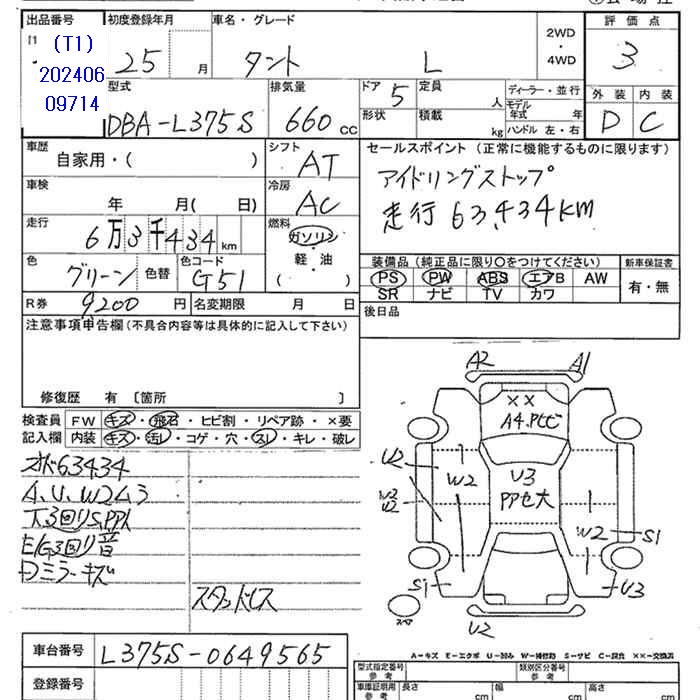 出品番号 初度登録年月 車名・グレード 評価点
(T1)
202406
09714
25 月 タント L 2WD・4WD 3
型式 排気量 ドア 5 定員 人 ディーラー・並行 外装 内装
DBA-L375S 660 CC 形状 積載 kg モデル年式 年 ハンドル 左・右 D C
車歴 自家用・( ) シフト AT セールスポイント (正常に機能するものに限ります)
車検 年 月( 日) 冷房 AC アイドリングストップ
走行 6万3千434km 燃料 ガソリン・軽・油 ( ) 走行63,434KM
色 グリーン 色替 色コード G51 装備品 (純正品に限り○をつけてください) 新車保証書
PS PW ABS エアB AW 有・無
SR ナビ TV カワ
R券 9200 円 名変期限 月 日 後日品
注意事項申告欄(不具合内容等は具体的に記入して下さい)
修復歴 有 〔箇所 〕
検査員 FW キズ・飛石・ヒビ割・リペア跡・×要
記入欄 内装 キズ・汚レ・コゲ・穴・スレ・キレ・破レ
63434
A、U、W2ムラ
下3回りS
E/G3回り音
ミラーキズ
スタッドレス
A2 A1
××
A4.
U2 W2 U3
W2 U2 大
W2 S1
S1 U3
U2
スペア
A-キズ E-エクボ U-凹み W-補修跡 S-サビ C-腐食 ××-交換済
車台番号 L375S-0649565
登録番号
型式指定番号 参考 類別区分番号 参考
車庫証明用 参考 長さ cm 幅 cm 高さ cm